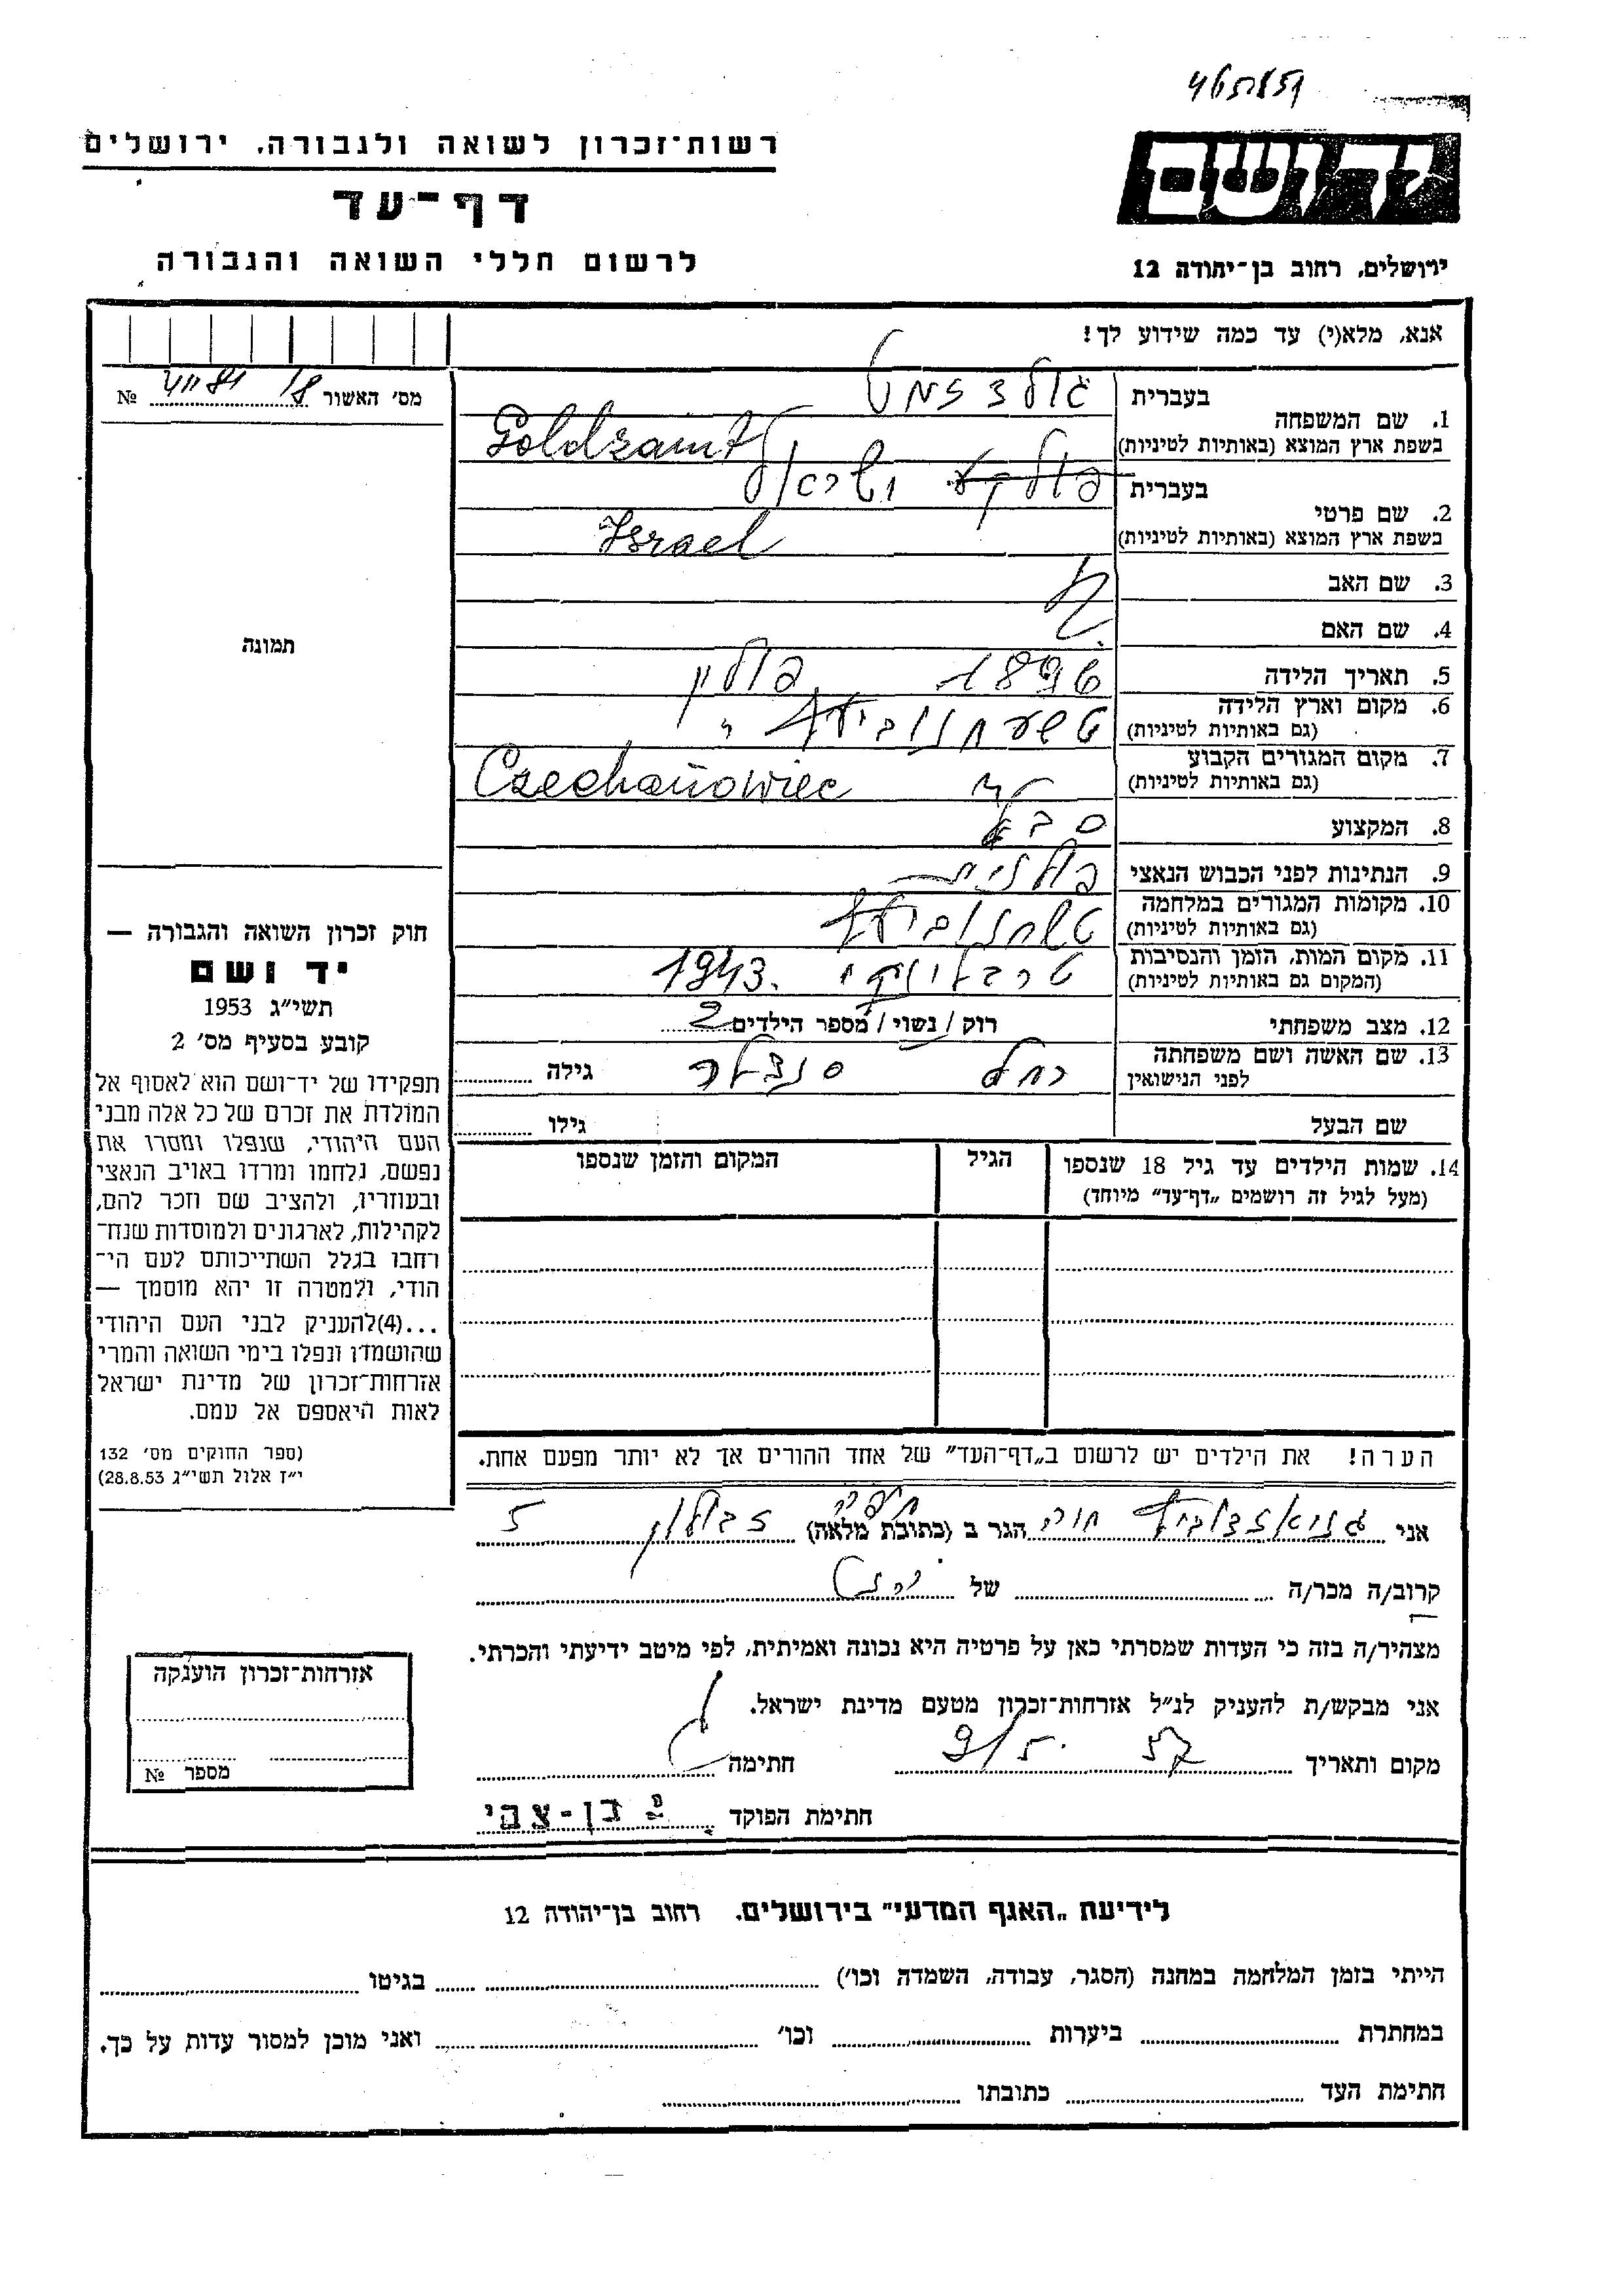 יד ושם
רשות־זכרון לשואה ולגבורה, ירושלים
דף־עד
לרשום חללי השואה והגבורה
ירושלים, רחוב בן־יהודה 12
אנא, מלא(י) עד כמה שידוע לך!
מס׳ האשור №
תמונה
1. שם המשפחה
בעברית גולדזאמט
בשפת ארץ המוצא (באותיות לטיניות) Goldzamt
2. שם פרטי
בעברית ישראל
בשפת ארץ המוצא (באותיות לטיניות) Israel
3. שם האב
4. שם האם
5. תאריך הלידה 1896 פולין
6. מקום וארץ הלידה
(גם באותיות לטיניות)
7. מקום המגורים הקבוע
(גם באותיות לטיניות) Czechanowiec
8. המקצוע סבל
9. הנתינות לפני הכבוש הנאצי פולנית
10. מקומות המגורים במלחמה
(גם באותיות לטיניות)
11. מקום המות, הזמן והנסיבות
(המקום גם באותיות לטיניות) 1943.
12. מצב משפחתי רוק / נשוי / מספר הילדים 2
13. שם האשה ושם משפחתה
לפני הנישואין רחל גילה
שם הבעל גילו
14. שמות הילדים עד גיל 18 שנספו
(מעל לגיל זה רושמים „דף־עד״ מיוחד)
הגיל
המקום והזמן שנספו
הערה! את הילדים יש לרשום ב„דף־העד״ של אחד ההורים אך לא יותר מפעם אחת.
חוק זכרון השואה והגבורה —
יד ושם
תשי״ג 1953
קובע בסעיף מס׳ 2
תפקידו של יד־ושם הוא לאסוף אל
המולדת את זכרם של כל אלה מבני
העם היהודי, שנפלו ומסרו את
נפשם, נלחמו ומרדו באויב הנאצי
ובעוזריו, ולהציב שם וזכר להם,
לקהילות, לארגונים ולמוסדות שנח־
רחבו בגלל השתייכותם לעם הי־
הודי, ולמטרה זו יהא מוסמך —
...(4)להעניק לבני העם היהודי
שהושמדו ונפלו בימי השואה והמרי
אזרחות־זכרון של מדינת ישראל
לאות היאספם אל עמם.
(ספר החוקים מס׳ 132
י״ז אלול תשי״ג 28.8.53)
אני חוה הגר ב (כתובת מלאה) חיפה זבולון 5
קרוב/ה מכר/ה של
מצהיר/ה בזה כי העדות שמסרתי כאן על פרטיה היא נכונה ואמיתית, לפי מיטב ידיעתי והכרתי.
אני מבקש/ת להעניק לנ״ל אזרחות־זכרון מטעם מדינת ישראל.
מקום ותאריך 9/5 57 חתימה
חתימת הפוקד בן-צבי
אזרחות־זכרון הוענקה
מספר №
לידיעת „האגף המדעי״ בירושלים, רחוב בן־יהודה 12
הייתי בזמן המלחמה במחנה (הסגר, עבודה, השמדה וכו׳) בגיטו
במחתרת ביערות וכו׳ ואני מוכן למסור עדות על כך.
חתימת העד כתובתו